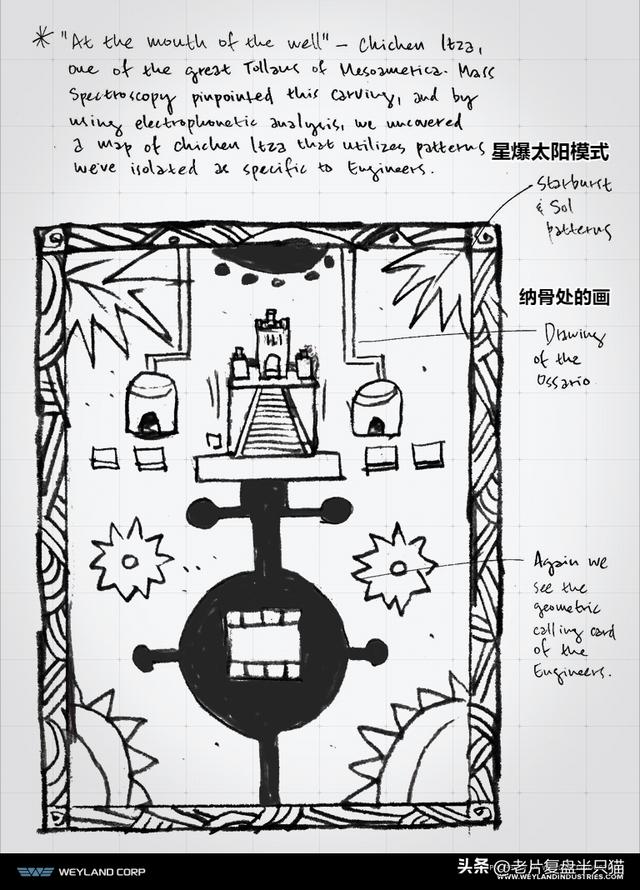 * "At the mouth of the well" – Chichen Itza,
one of the great Tollans of Mesoamerica. Mass
Spectroscopy pinpointed this carving, and by
using electrophonetic analysis, we uncovered
a map of Chichen Itza that utilizes patterns
we've isolated as specific to Engineers.
星爆太阳模式
Starburst
& Sol
patterns
纳骨处的画
Drawing
of the
Ossario
Again we
see the
geometric
calling card
of the
Engineers.
WEYLAND CORP
头条 @老片复盘半只猫
WWW.WEYLANDINDUSTRIES.COM